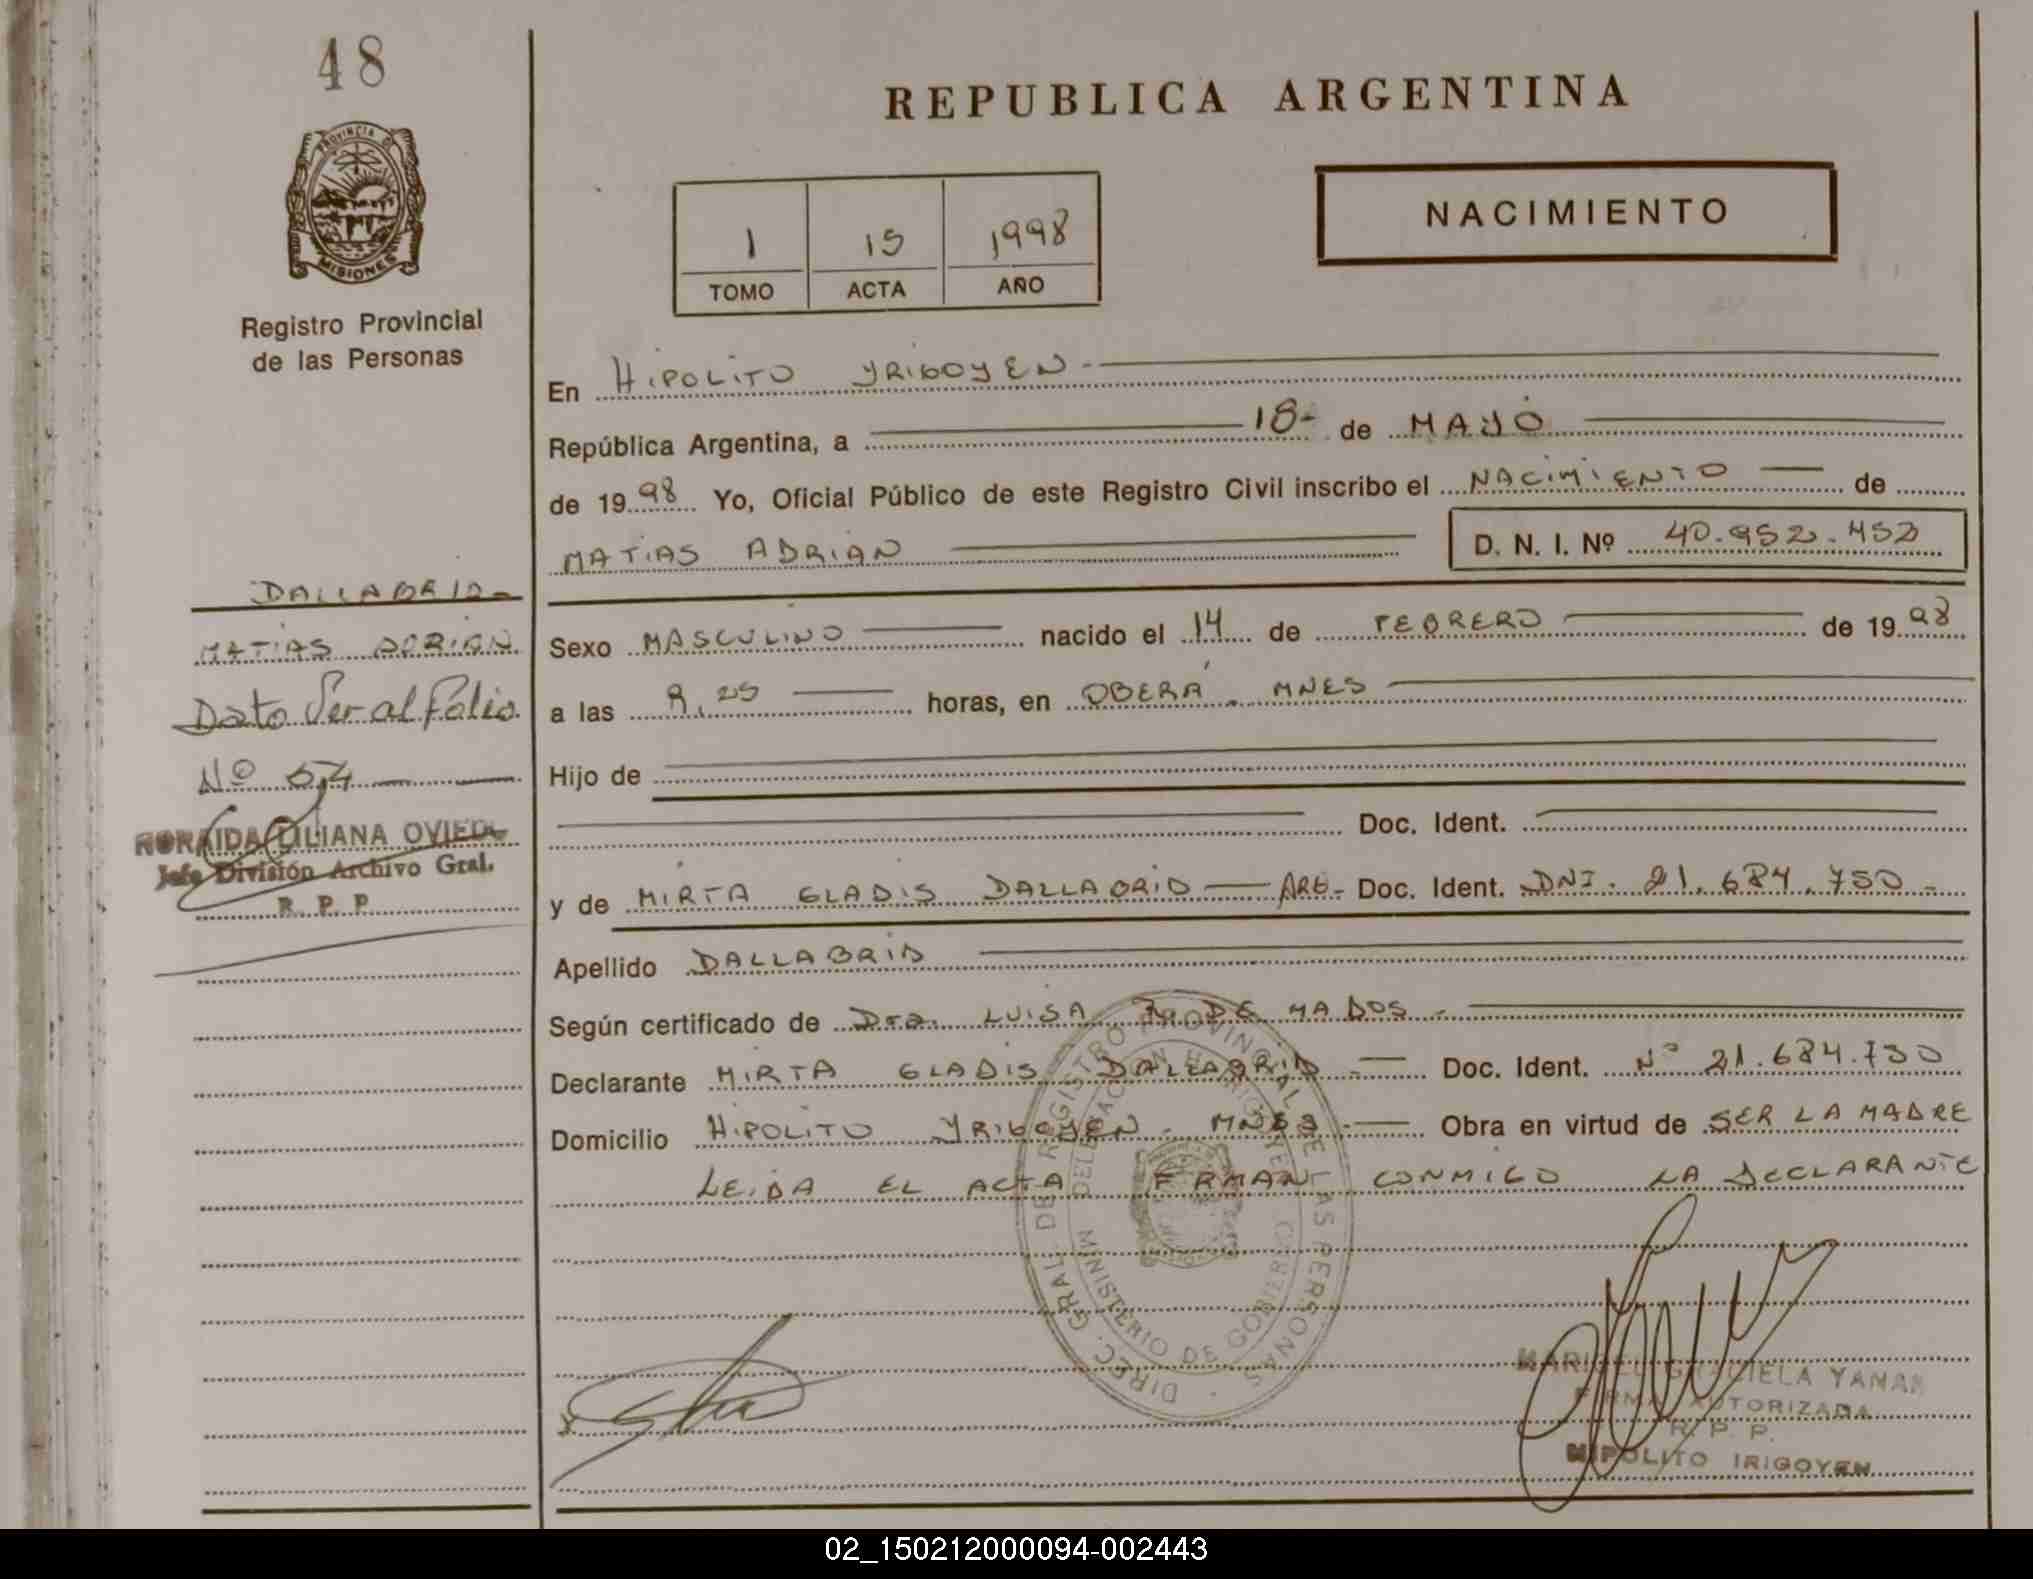 48
PROVINCIA DE
MISIONES
Registro Provincial
de las Personas
REPUBLICA ARGENTINA
1 15 1998
TOMO ACTA AÑO
NACIMIENTO
En HIPOLITO YRIGOYEN -
República Argentina, a 18- de MAYO
de 1998 Yo, Oficial Público de este Registro Civil inscribo el NACIMIENTO de
MATIAS ADRIAN D. N. I. Nº 40.952.452
Sexo MASCULINO nacido el 14 de FEBRERO de 1998
a las 8,25 horas, en OBERÁ - MNES
Hijo de
Doc. Ident.
y de MIRTA GLADIS DALLABRID ARG- Doc. Ident. DNI. 21.684.750 -
Apellido DALLABRID
Según certificado de Dra. LUISA DE MADOS -
Declarante MIRTA GLADIS DALLABRID - Doc. Ident. Nº 21.684.750
Domicilio HIPOLITO YRIGOYEN - MNES - Obra en virtud de SER LA MADRE
LEIDA EL ACTA FIRMAN CONMIGO LA DECLARANTE
DALLABRID-
MATIAS ADRIAN
Dato Ver al folio
Nº 54
LILIANA OVIEDO
Jefe División Archivo Gral.
R. P. P.
DIREC. GRAL. DE REGISTRO PROVINCIAL DE LAS PERSONAS
MINISTERIO DE GOBIERNO
GRACIELA YAMAN
FIRMA AUTORIZADA
R. P. P.
HIPOLITO IRIGOYEN
02_150212000094-002443